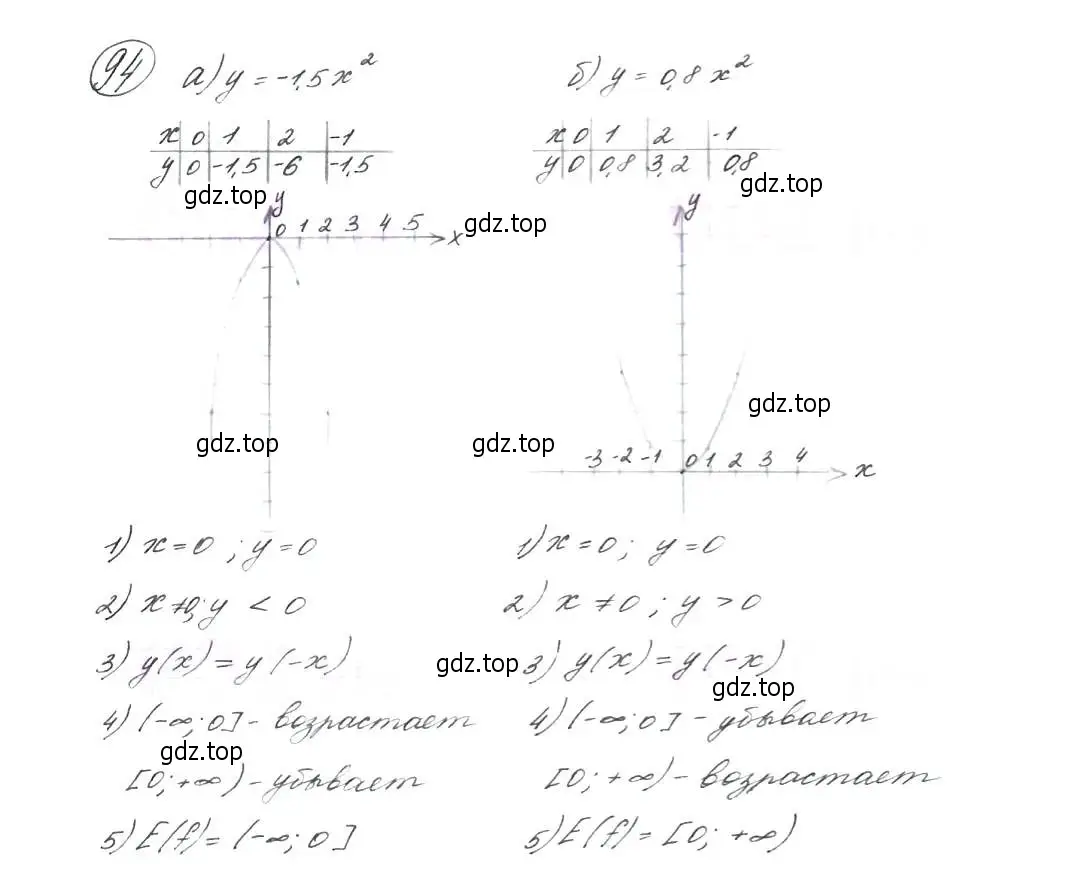 94 а) y = -1,5x² б) y = 0,8x²
x 0 1 2 -1
y 0 -1,5 -6 -1,5
x 0 1 2 -1
y 0 0,8 3,2 0,8
gdz.top
gdz.top
y
0 1 2 3 4 5 x
gdz.top
y
gdz.top
gdz.top
gdz.top
-3 -2 -1 0 1 2 3 4 x
1) x=0 ; y=0
2) x≠0; y < 0
3) y(x) = y(-x)
gdz.top
4) (-∞; 0] - возрастает
gdz.top
[0; +∞) - убывает
5) E(f) = (-∞; 0]
1) x=0; y=0
2) x ≠ 0 ; y > 0
3) y(x) = y(-x)
gdz.top
4) (-∞; 0] - убывает
[0; +∞) - возрастает
5) E(f) = [0; +∞)